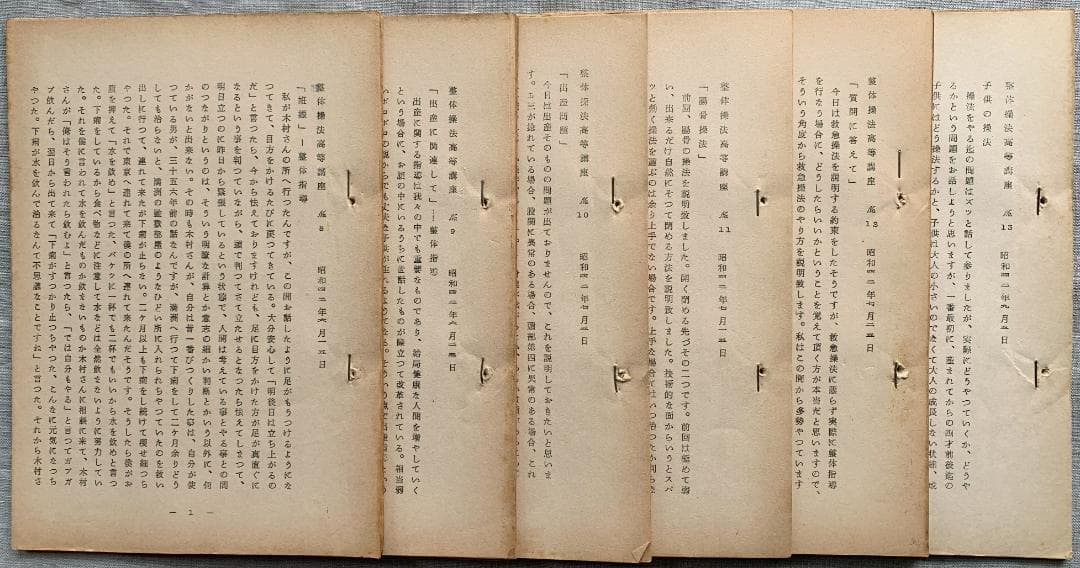 整体操法高等講座 №8 昭和四二年六月二五日
「妊娠」─整体指導
私が木村さんの所へ行つたんですが、この間お話したように足がもうつけるようにな
つてきて、目方をかけるたびに
だ」と言つたら、今から怯えておりますけれども、足に目方をかけた方が足が真直ぐに
なるという事を判つていながら、頭で判つてさて立たせるとなつたら怯えてしまつて、
明日立つのに昨日から緊張しているという状態で、人間は考えている事とやる事との間
のつながりというのは、そういう明瞭な計算とか意志の細かい判断とかいう以外に、何
かがないと出来ない。その時も木村さんが、自分は昔一番びつくりした事は、自分が使
つている男が、三十五六年前の話なんですが、満洲へ行つて下痢をして二ケ月余りどう
しても治らないと、満洲の
出しに行つて、連れて来たが下痢が止らない。二ケ月以上も下痢をし続けて痩せ細つち
やつた。それで東京へ連れて来て僕の所へ連れて来たんだそうです。そうしたら僕がお
腹を押えて「水を飲め」と言つた。バケツに一杯でも二杯でもいいから水を飲めと言つ
た。下痢をしているから食べ物などに注意して水などは全然飲まないように努力してい
た。それを僕に言われて水を飲んだものか飲まないものか木村さんに相談に来て、木村
さんが「俺はそう言われたら飲むよ」と言つたら、「では自分もやる」と言つてガブガ
ブ飲んだら、翌日から出て来て「下痢がすつかり止つちやつた、こんなに元気になつち
やつた。下痢が水を飲んで治るなんて不思議なことですね」と言つた。それから木村さ
─ 1 ─
整体操法高等講座 №9
「出産に関連して」─整体指導
出産に関する指導は我々の中でも重要なものであり、結局健康な人間を増やしていく
という場合に、お腹の中にいるうちに言語したものが際立つて改革されている。相当弱
整体操法高等講座 №10 昭和四二年七月五日
「出産問題」
今日は出産そのものの問題が出ておりませんので、これを説明しておきたいと思いま
す。
整体操法高等講座 №11 昭和四二年七月一五日
「腸骨操法」
前回、腸骨の操法を説明致しました。開く閉める先づその二つです。前回は極めて弱
い、出来るだけ自然にそつて閉める方法を説明致しました。技術的な面からいうとスパ
ッと動く操法を選ぶのは余り上手でない操法です。
整体操法高等講座 №12 昭和四二年七月二五日
「質問に答えて」
今日は救急操法を説明する約束をしたそうですが、救急操法に限らず実際に整体指導
を行なう場合に、どうしたらいいかということを覚えて頂く方が本当だと思いますので、
そういう角度から救急操法のやり方を説明致します。私はこの間から多勢やつています
整体操法高等講座 №13 昭和四二年九月五日
子供の操法
操法をやる迄の問題はズッと話して参りましたが、実際にどうやつていくか、どうや
るかという問題をお話しようと思いますが、一番最初に、産まれてからの四才前後迄の
子供にはどう操法するかと、子供は大人の小さいのでなくて大人の成長しない状態、